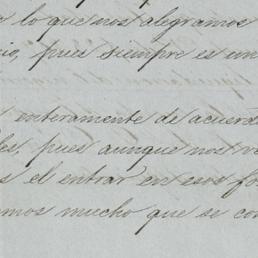 lo que nos alegramos
pues siempre es un
enteramente de acuerd
pues aunque nos
el entrar en esos
mos mucho que se con